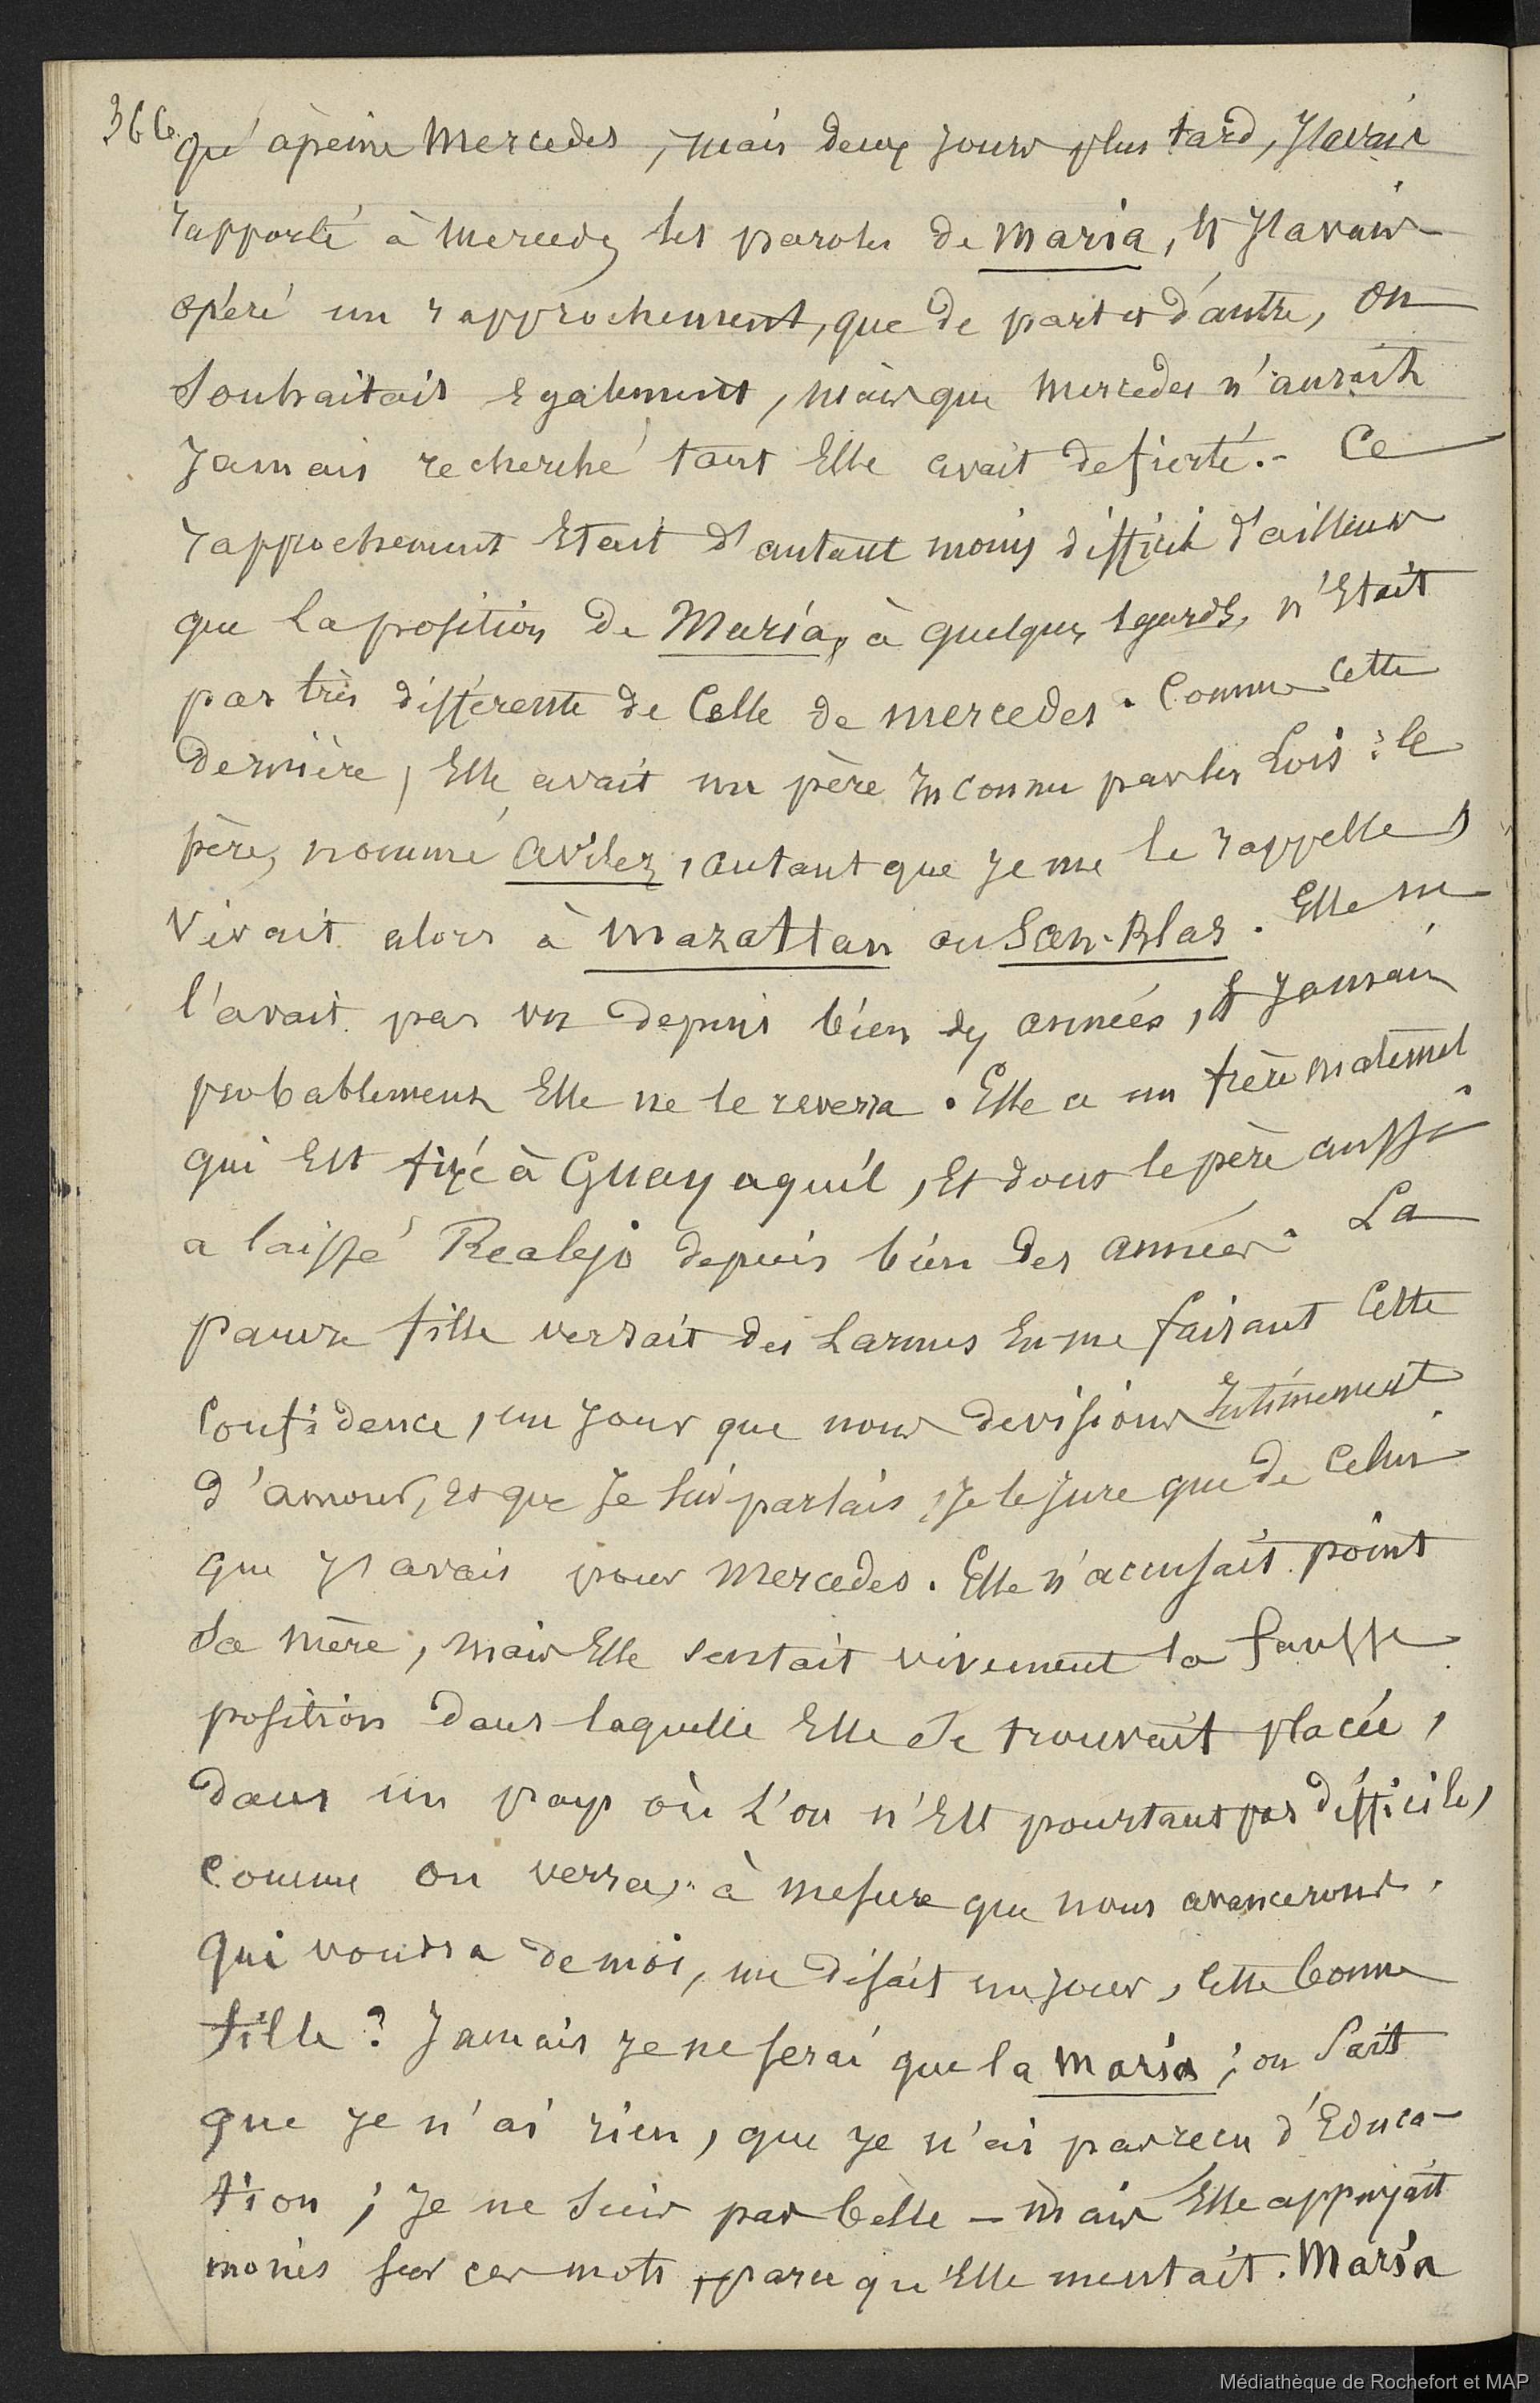 366.
qu'àpeine Mercedes, mais deux jours plus tard, J'avais
rapporté à Mercedes les paroles de Maria, Et J'avais
opéré un rapprochement, que de part et d'autre, on
Souhaitait Egalement, mais que Mercedes n'aurait
Jamais recherché tant Elle avait de fierté. - Ce
rapprochement Etait d'autant moins difficile d'ailleurs
que la position de Maria, à quelques Egards, n'Etait
pas très différente de Celle de Mercedes. Comme cette
dernière, Elle avait un père Inconnu par les Lois : le
père, nommé Avilez, autant que je me le rappelle,
Vivait alors à Mazattan ou San-Blas. Elle ne
l'avait pas vu depuis bien des années, Et Jamais
probablement Elle ne le reverra. Elle a un frère maternel
qui Est fixé à Guayaquil, Et dont le père aussi
a laissé Realejo depuis bien des années. La
pauvre fille versait des Larmes En me faisant Cette
Confidence, un Jour que nous devisions Intimement
d'amour, Et que Je lui parlais, Je le Jure que de Celui
que J'avais pour Mercedes. Elle n'accusait point
Sa mère, mais Elle sentait vivement la fausse
position dans laquelle Elle Se trouvait placée,
dans un pays où L'on n'Est pourtant pas difficile,
Comme on verra, à mesure que nous avancerons.
Qui voudra de moi, me disait un jour, Cette bonne
fille ? Jamais je ne serai que la Maria ; on Sait
que je n'ai rien, que je n'ai pas reçu d'Educa-
tion ; Je ne Suis pas belle - mais Elle appuyait
moins sur ces mots, parce qu'Elle mentait. Maria
Médiathèque de Rochefort et MAP